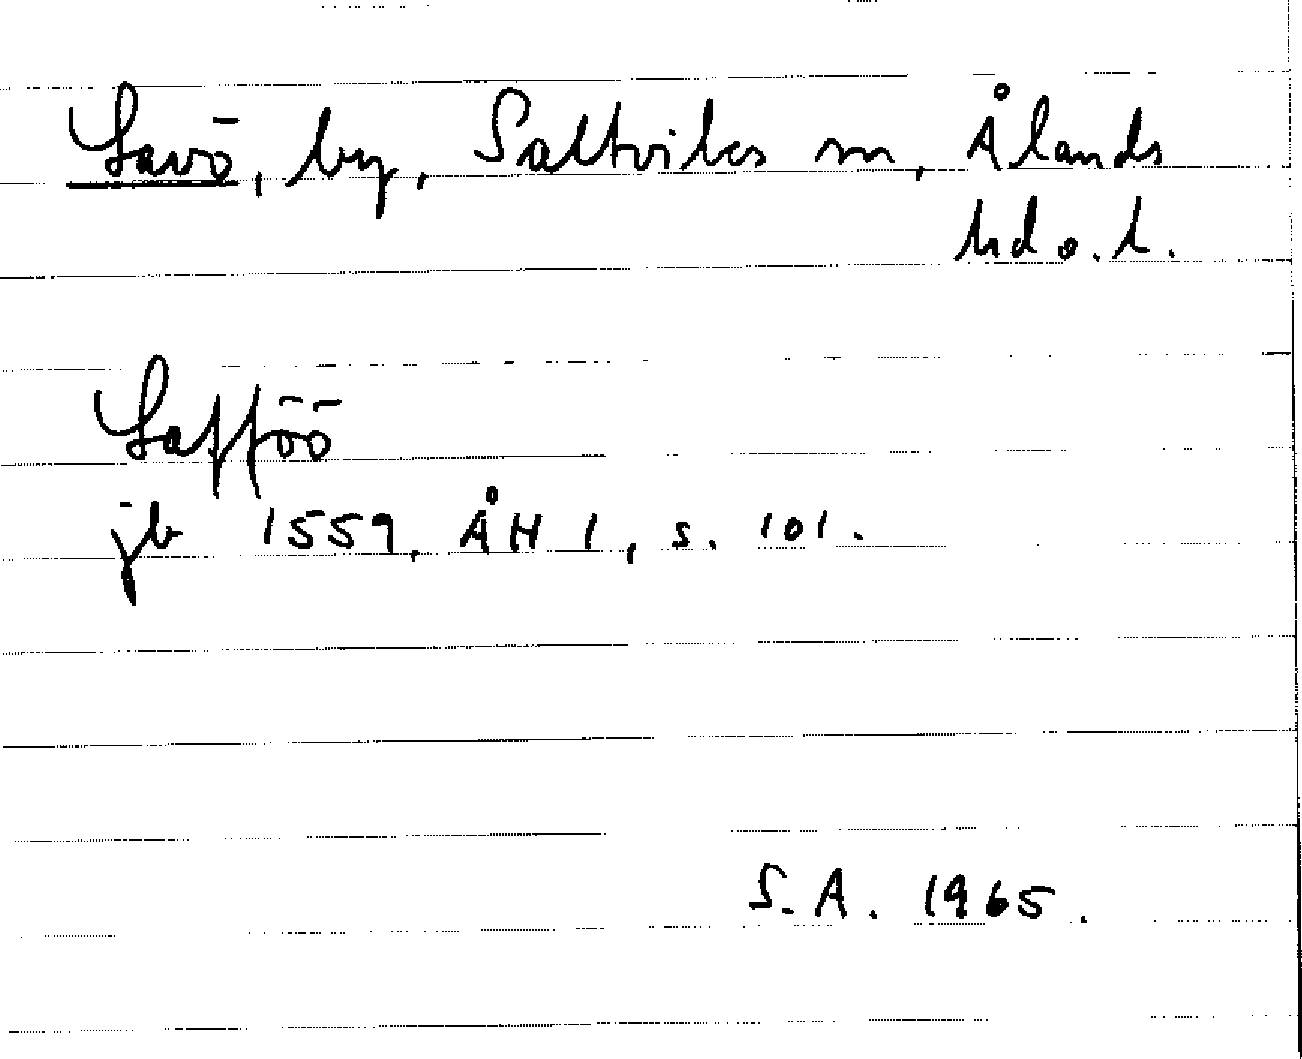 Lavö, by, Saltviks sn, Ålands
hd o. l.
Lafföö
jb 1559, ÅH I, s. 101.
S.A. 1965.